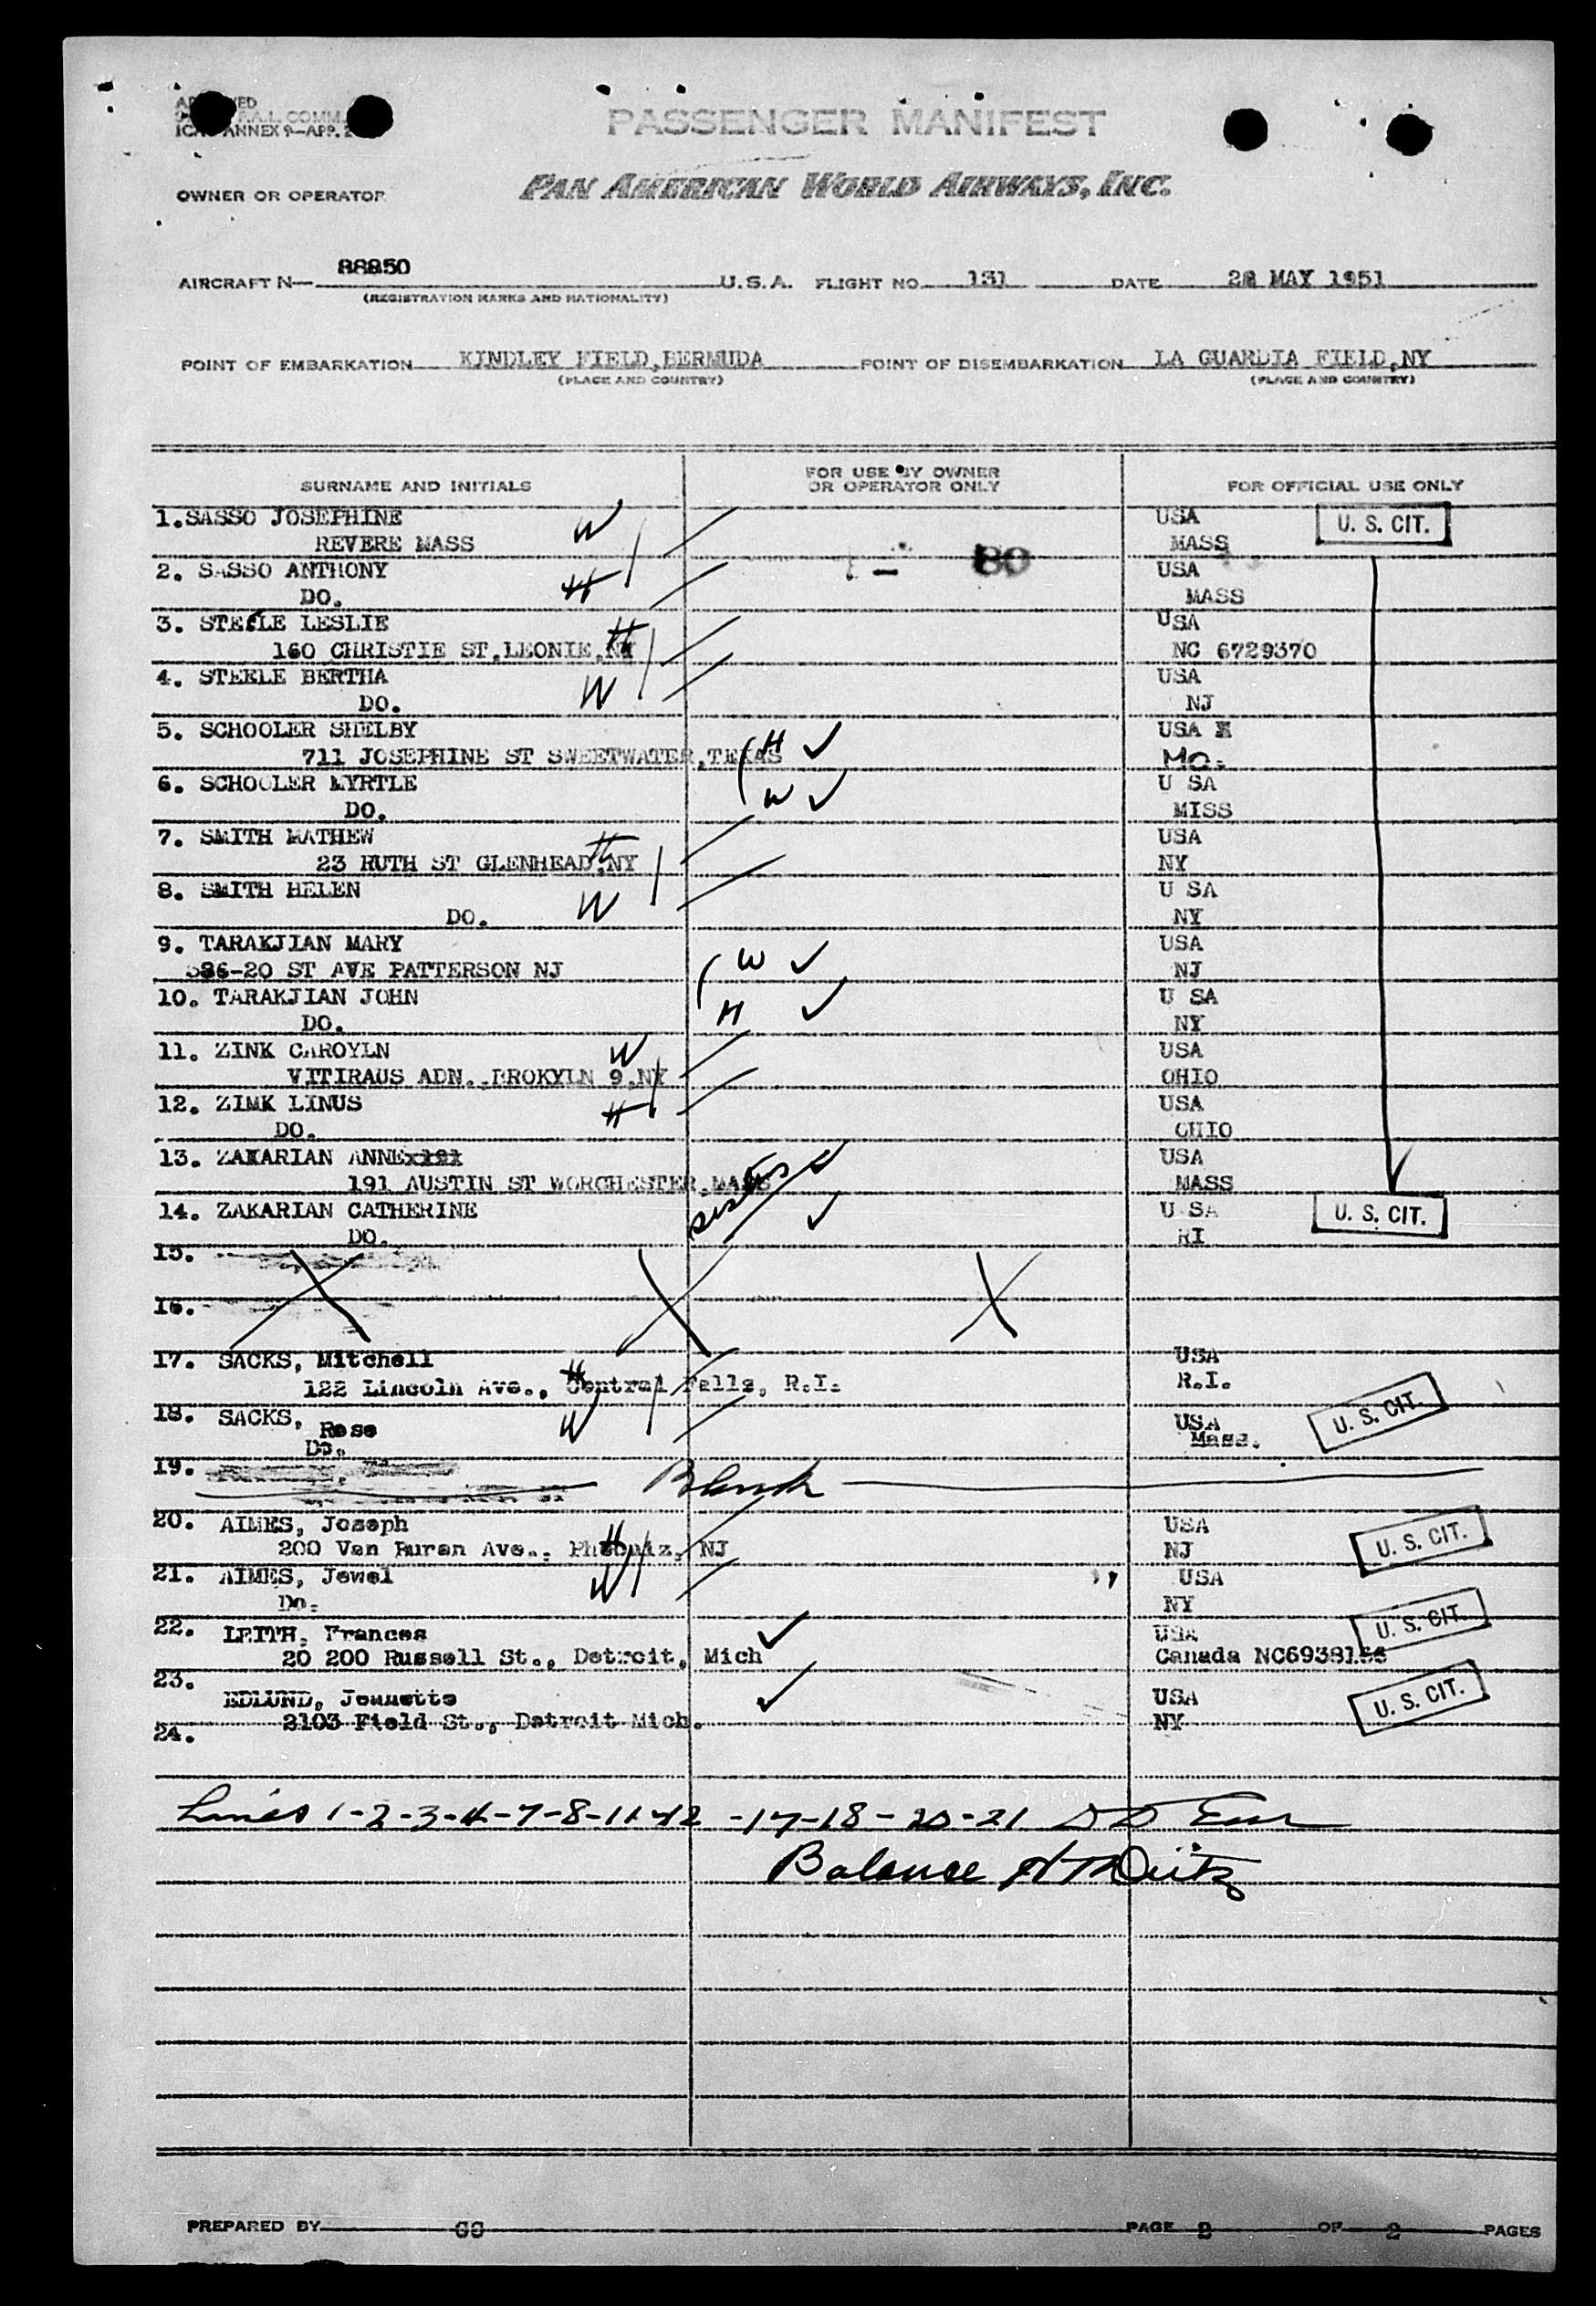 PASSENGER MANIFEST
F.A.L. COMM.
ANNEX 9—APP. 2
OWNER OR OPERATOR
PAN AMERICAN WORLD AIRWAYS, INC.
AIRCRAFT N— 88850 U.S.A. FLIGHT NO. 131 DATE 28 MAY 1951
(REGISTRATION MARKS AND NATIONALITY)
POINT OF EMBARKATION KINDLEY FIELD,BERMUDA POINT OF DISEMBARKATION LA GUARDIA FIELD,NY
(PLACE AND COUNTRY) (PLACE AND COUNTRY)
SURNAME AND INITIALS FOR USE BY OWNER OR OPERATOR ONLY FOR OFFICIAL USE ONLY
1.SASSO JOSEPHINE W USA U. S. CIT.
REVERE MASS MASS
80
2. SASSO ANTHONY H USA
DO. MASS
3. STEELE LESLIE H USA
160 CHRISTIE ST.LEONIE, NC 6729370
4. STEELE BERTHA W USA
DO. NJ
5. SCHOOLER SHELBY USA
711 JOSEPHINE ST SWEETWATER,TEXAS H ✓ MO.
6. SCHOOLER MYRTLE U SA
DO. W ✓ MISS
7. SMITH MATHEW H USA
23 RUTH ST GLENHEAD,NY NY
8. SMITH HELEN W U SA
DO. NY
9. TARAKJIAN MARY W ✓ USA
586-20 ST AVE PATTERSON NJ NJ
10. TARAKJIAN JOHN U SA
DO. H ✓ NY
11. ZINK CAROYLN W USA
VITIRAUS ADN..BROKYLN 9,NY OHIO
12. ZIMK LINUS H USA
DO. OHIO
13. ZAKARIAN ANNE sisters ✓ USA
191 AUSTIN ST WORCHESTER,MASS MASS
14. ZAKARIAN CATHERINE ✓ U SA U. S. CIT.
DO. RI
15.
16.
17. SACKS, Mitchell H USA
122 Lincoln Ave., Central Falls, R.I. R.I.
18. SACKS, Rose W USA U. S. CIT.
Do. Mass.
19. Blank
20. AIMES, Joseph H USA U. S. CIT.
200 Van Buren Ave., NJ NJ
21. AIMES, Jewel W USA
Do. NY
22. LEITH, Frances ✓ USA U. S. CIT.
20 200 Russell St., Detroit, Mich Canada
23. EDLUND, Jeannette ✓ USA U. S. CIT.
2103 Field St., Detroit Mich. NY
24.
Lines 1-2-3-4-7-8-11-12 -17-18-20-21
Balance
PREPARED BY GG PAGE 2 OF 2 PAGES